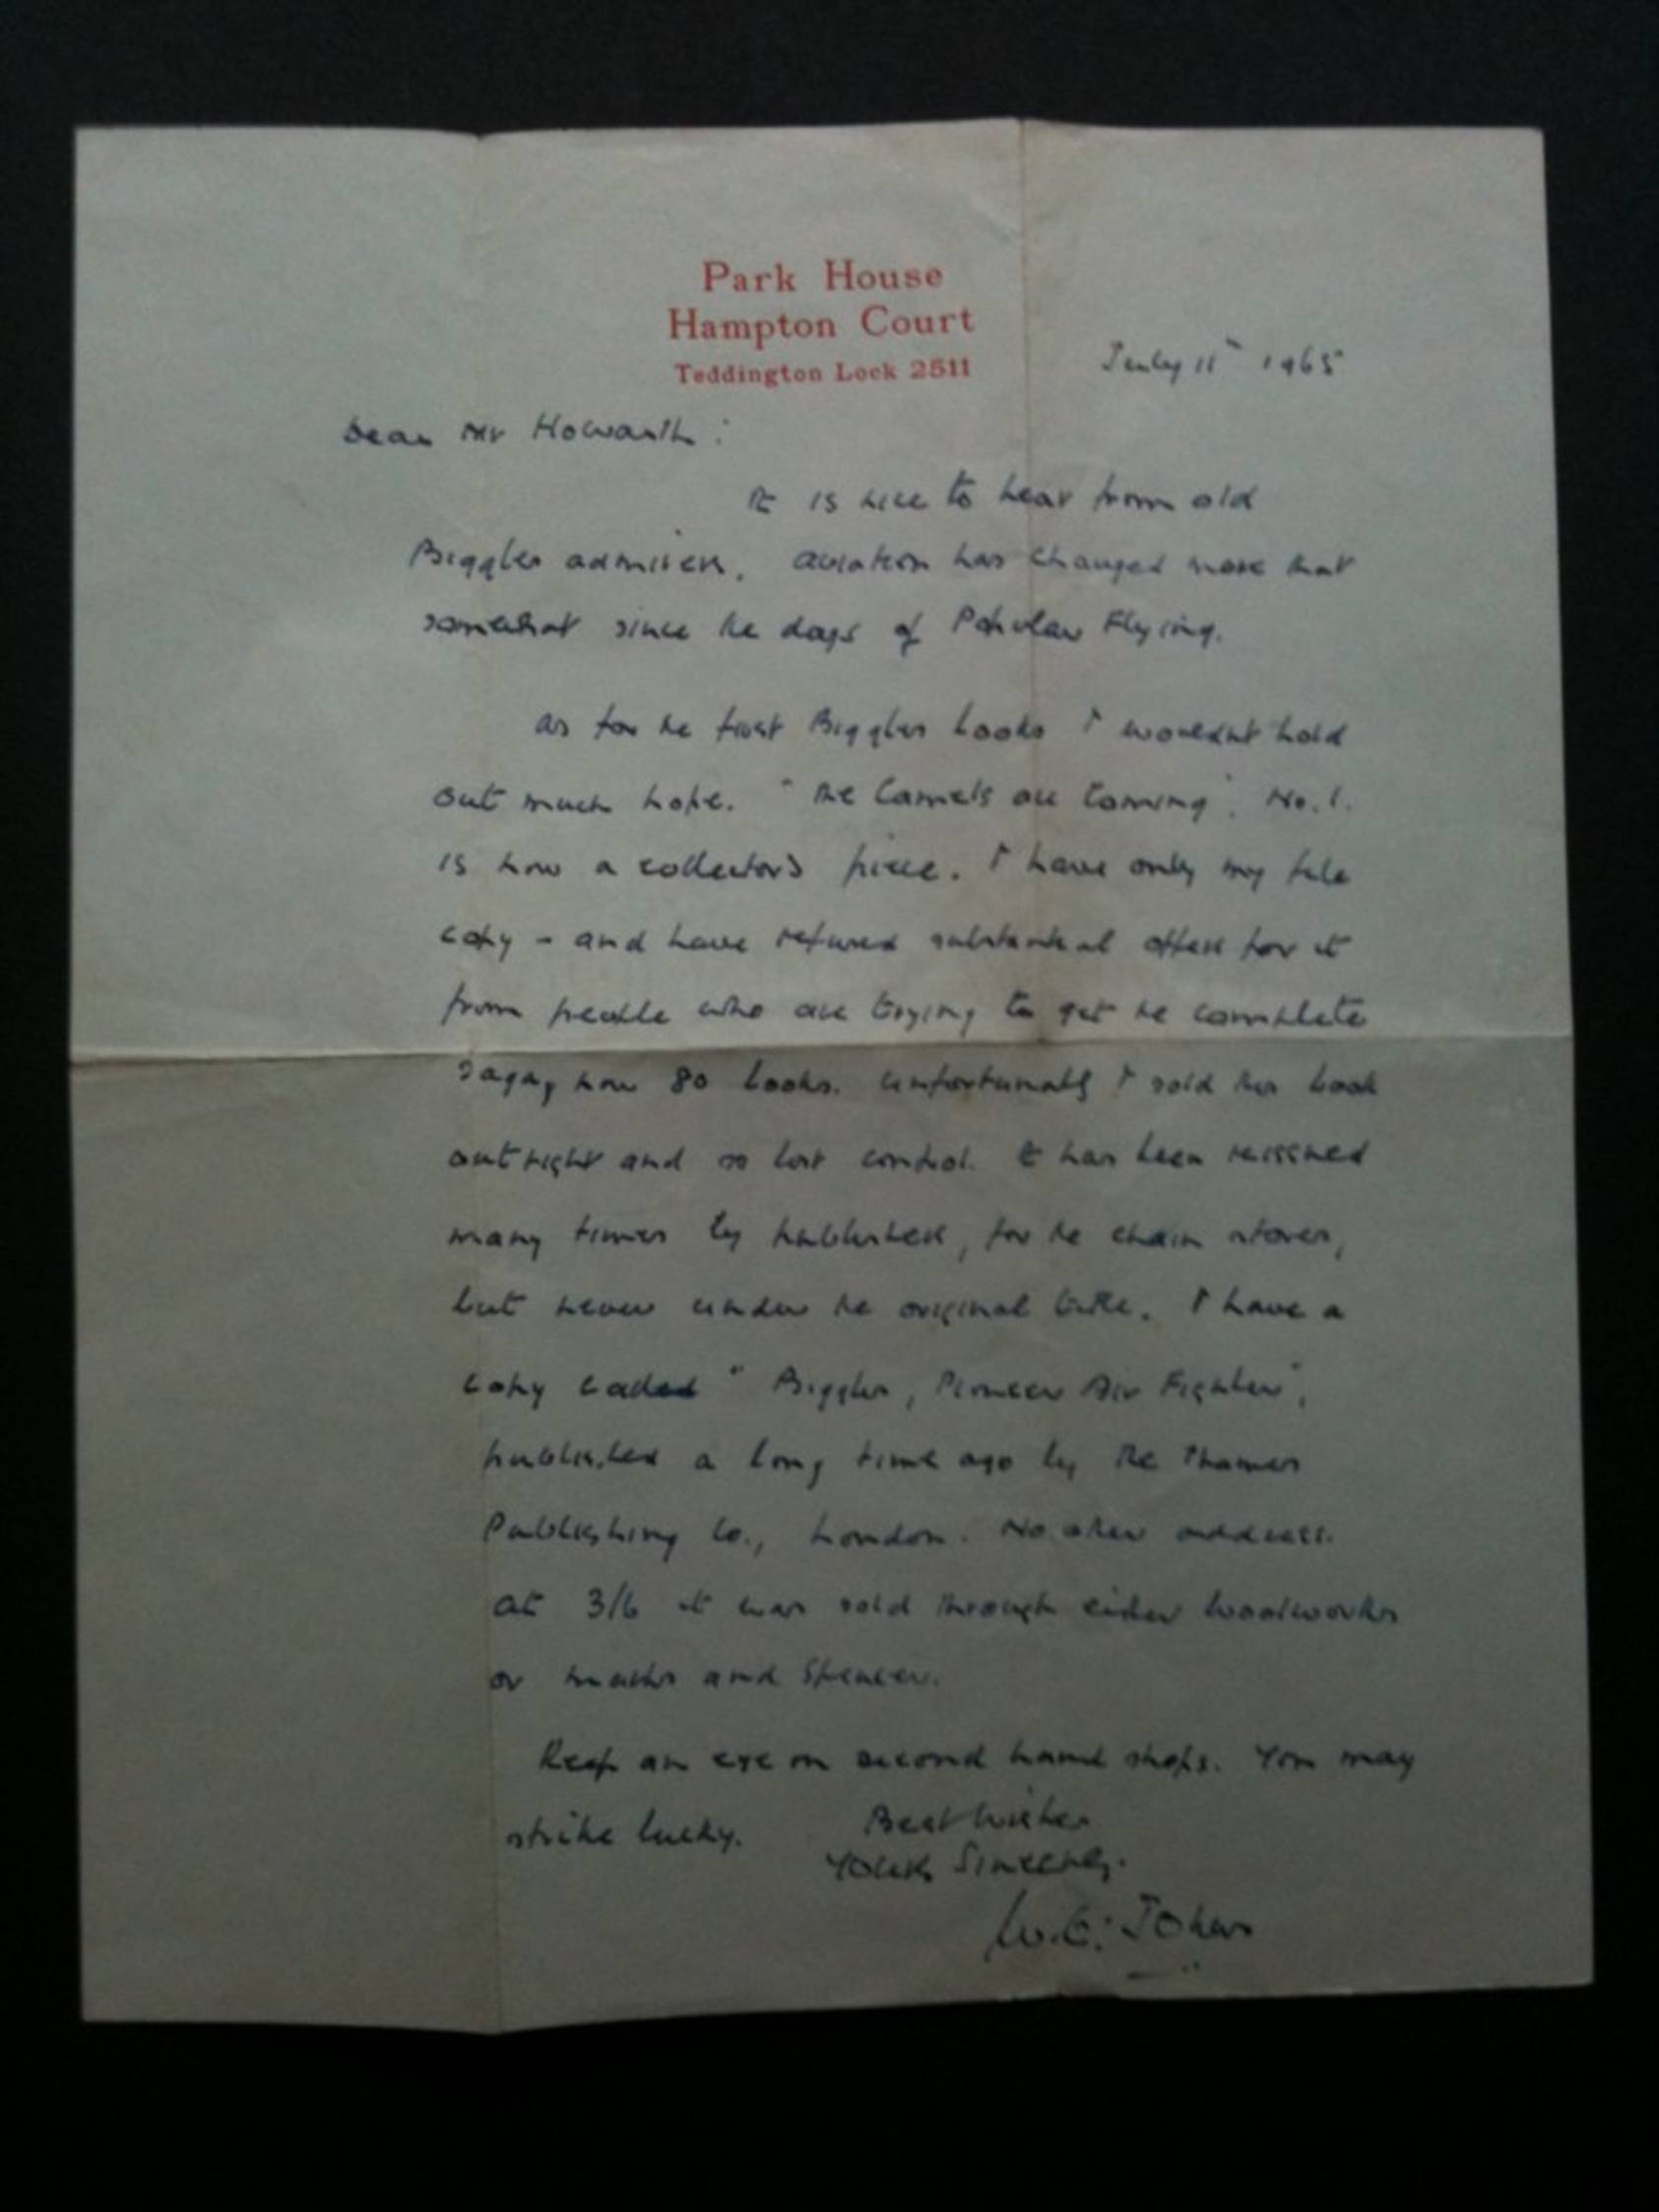 Park House
Hampton Court
Teddington Lock 2511
July 11th 1965
Dear Mr Howarth:
It is nice to hear from old
Biggles admirers. Aviation has changed more that
somewhat since the days of Popular Flying.
As for the first Biggles books I wouldn't hold
out much hope. "The Camels are Coming". No.1.
is now a collectors piece. I have only my file
copy - and have refused substantial offers for it
from people who are trying to get the complete
saga, now 80 books. Unfortunately I sold this book
outright and so lost control. It has been reissued
many times by publishers, for the chain stores,
but never under the original title. I have a
copy called "Biggles, Pioneer Air Fighter",
published a long time ago by the Thames
Publishing Co., London. No other address.
At 3/6 it was sold through either Woolworths
or Marks and Spencer.
Keep an eye on second hand shops. You may
strike lucky.
Best wishes
Yours Sincerely.
W.E. Johns